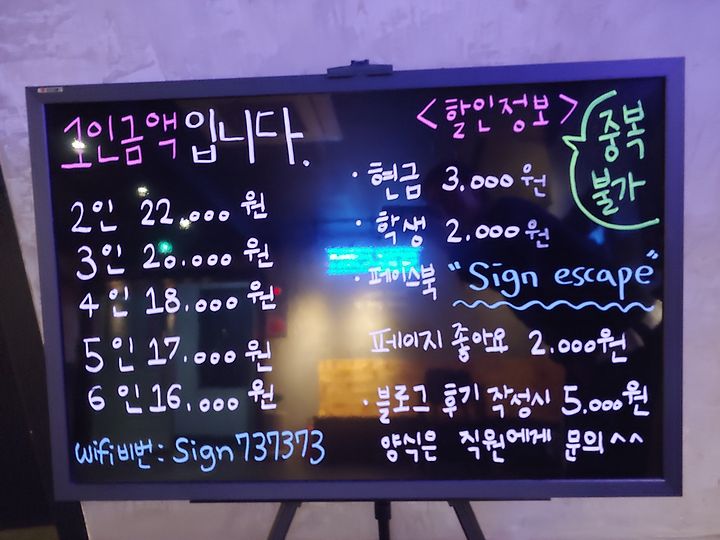 1인금액입니다.
2인 22.000원
3인 20.000원
4인 18.000원
5인 17.000원
6인 16.000원
wifi비번: Sign737373
<할인정보>
중복
불가
· 현금 3.000원
· 학생 2.000원
· 페이스북 "Sign escape"
페이지 좋아요 2.000원
· 블로그 후기 작성시 5.000원
양식은 직원에게 문의^^